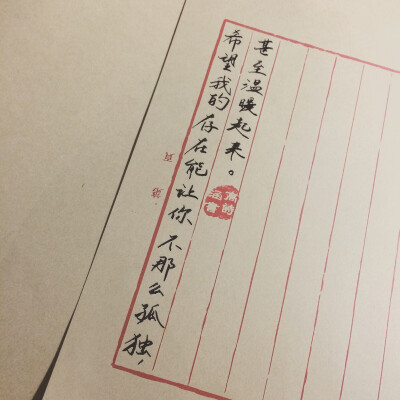 希望我的存在能让你不那么孤独，
甚至温暖起来。